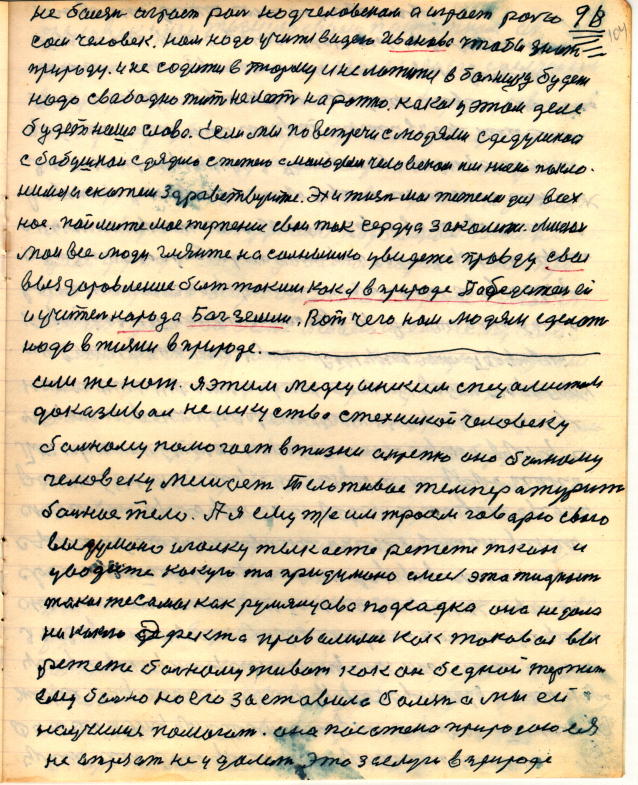 не болезн аграет рол над человеком а играет роль 98
сам человек. нам надо учител видет Иванова чтобы знат 104
природу. и не садити в тюрму и не ложити в болницу будем
надо свабадно жит не лезт на рожно. какое у этом деле
будет наше слово. Если мы по встречи с людями с дедушкой
с бабушкой с дядяю с тетею с молодым человеком ни ниско покло
нимся и скажем здравствуите. Эх и жизн моя тежолая для всех
ное. поймите мае терпение свои так сердца закалите. Милая
мои все люди гляните на солнышко увидете правду свае
выездаровление быт таким как я в природе Победителей
и учител народа Бог земли. Вот чего нам людям сделат
надо в жизни в природе.
или же нет. я этим медецынским специалистам
доказывал не искуство с техникой человеку
болному помогает в жизни а это оно болному
человеку мешает. Тело живое температурит
болное тело. А я ему т/е им троем говарю свого
выдумоно иголку те ржете ткан и
уводите какую то придумоно смес эта жидкост
такая же самая как румянцова подсадка она не дала
на какого эфекта провалилас как таковая вы
режете болному живот как он бедной терпит
ему болно но его заставила болезн а мы ей
научилис помогат. она поставлена природою ея
не отрезат не удалит это заслуги в природе